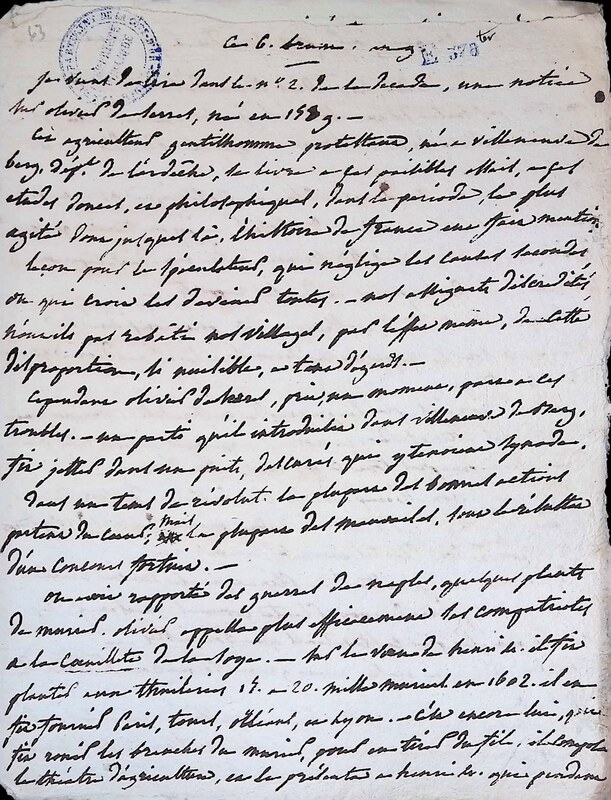 43
ce 6. brum. an 9
E 378 ter
je viens de lire dans le n.º 2. de la decade, une notice
sur olivier de serres, né en 1539. —
Cet agriculteur gentilhomme protestant, né a villeneuve de
berg, dép.t de l'ardèche, se livra a ces paisibles essais, a ces
etudes douces, et philosophiques, dans la periode, la plus
agitée dont jusques là, l'histoire de france eut fait mention
lecon pour les spéculateurs, qui néglige les causes secondes
ou qui croit les deviner toutes. — nos assignats discredités
n'ont ils pas rebati nos villages, par l'effet meme, de cette
disproportion, si nuisible, a tant d'égards. —
Cependant olivier de serres, prit, un moment, part a ces
troubles. — un parti qu'il introduisit dans villeneuve de Berg,
fit jetter dans un puits, des curés qui y tenoient synode.
dans un tems de révolut. la plupart des bonnes actions
partent du coeur, mais la plupart des mauvaises, sont le résultat
d'un concours fortuit. —
On avoit rapporté des guerres de naples, quelques plants
de murier. olivier appella plus efficacement ses compatriotes
a la cueillete de la soye. — sur le voeu de henri 4. il fit
planter aux thuileries 15. a 20. mille muriers en 1602. il en
fit fournir Paris, tours, orléans, et lyon. — C'est encore lui, qui
fit rouir les branches du murier, pour en tirer du fil, il composa
le théatre d'agriculture, et le présenta a henri 4. qui pendant